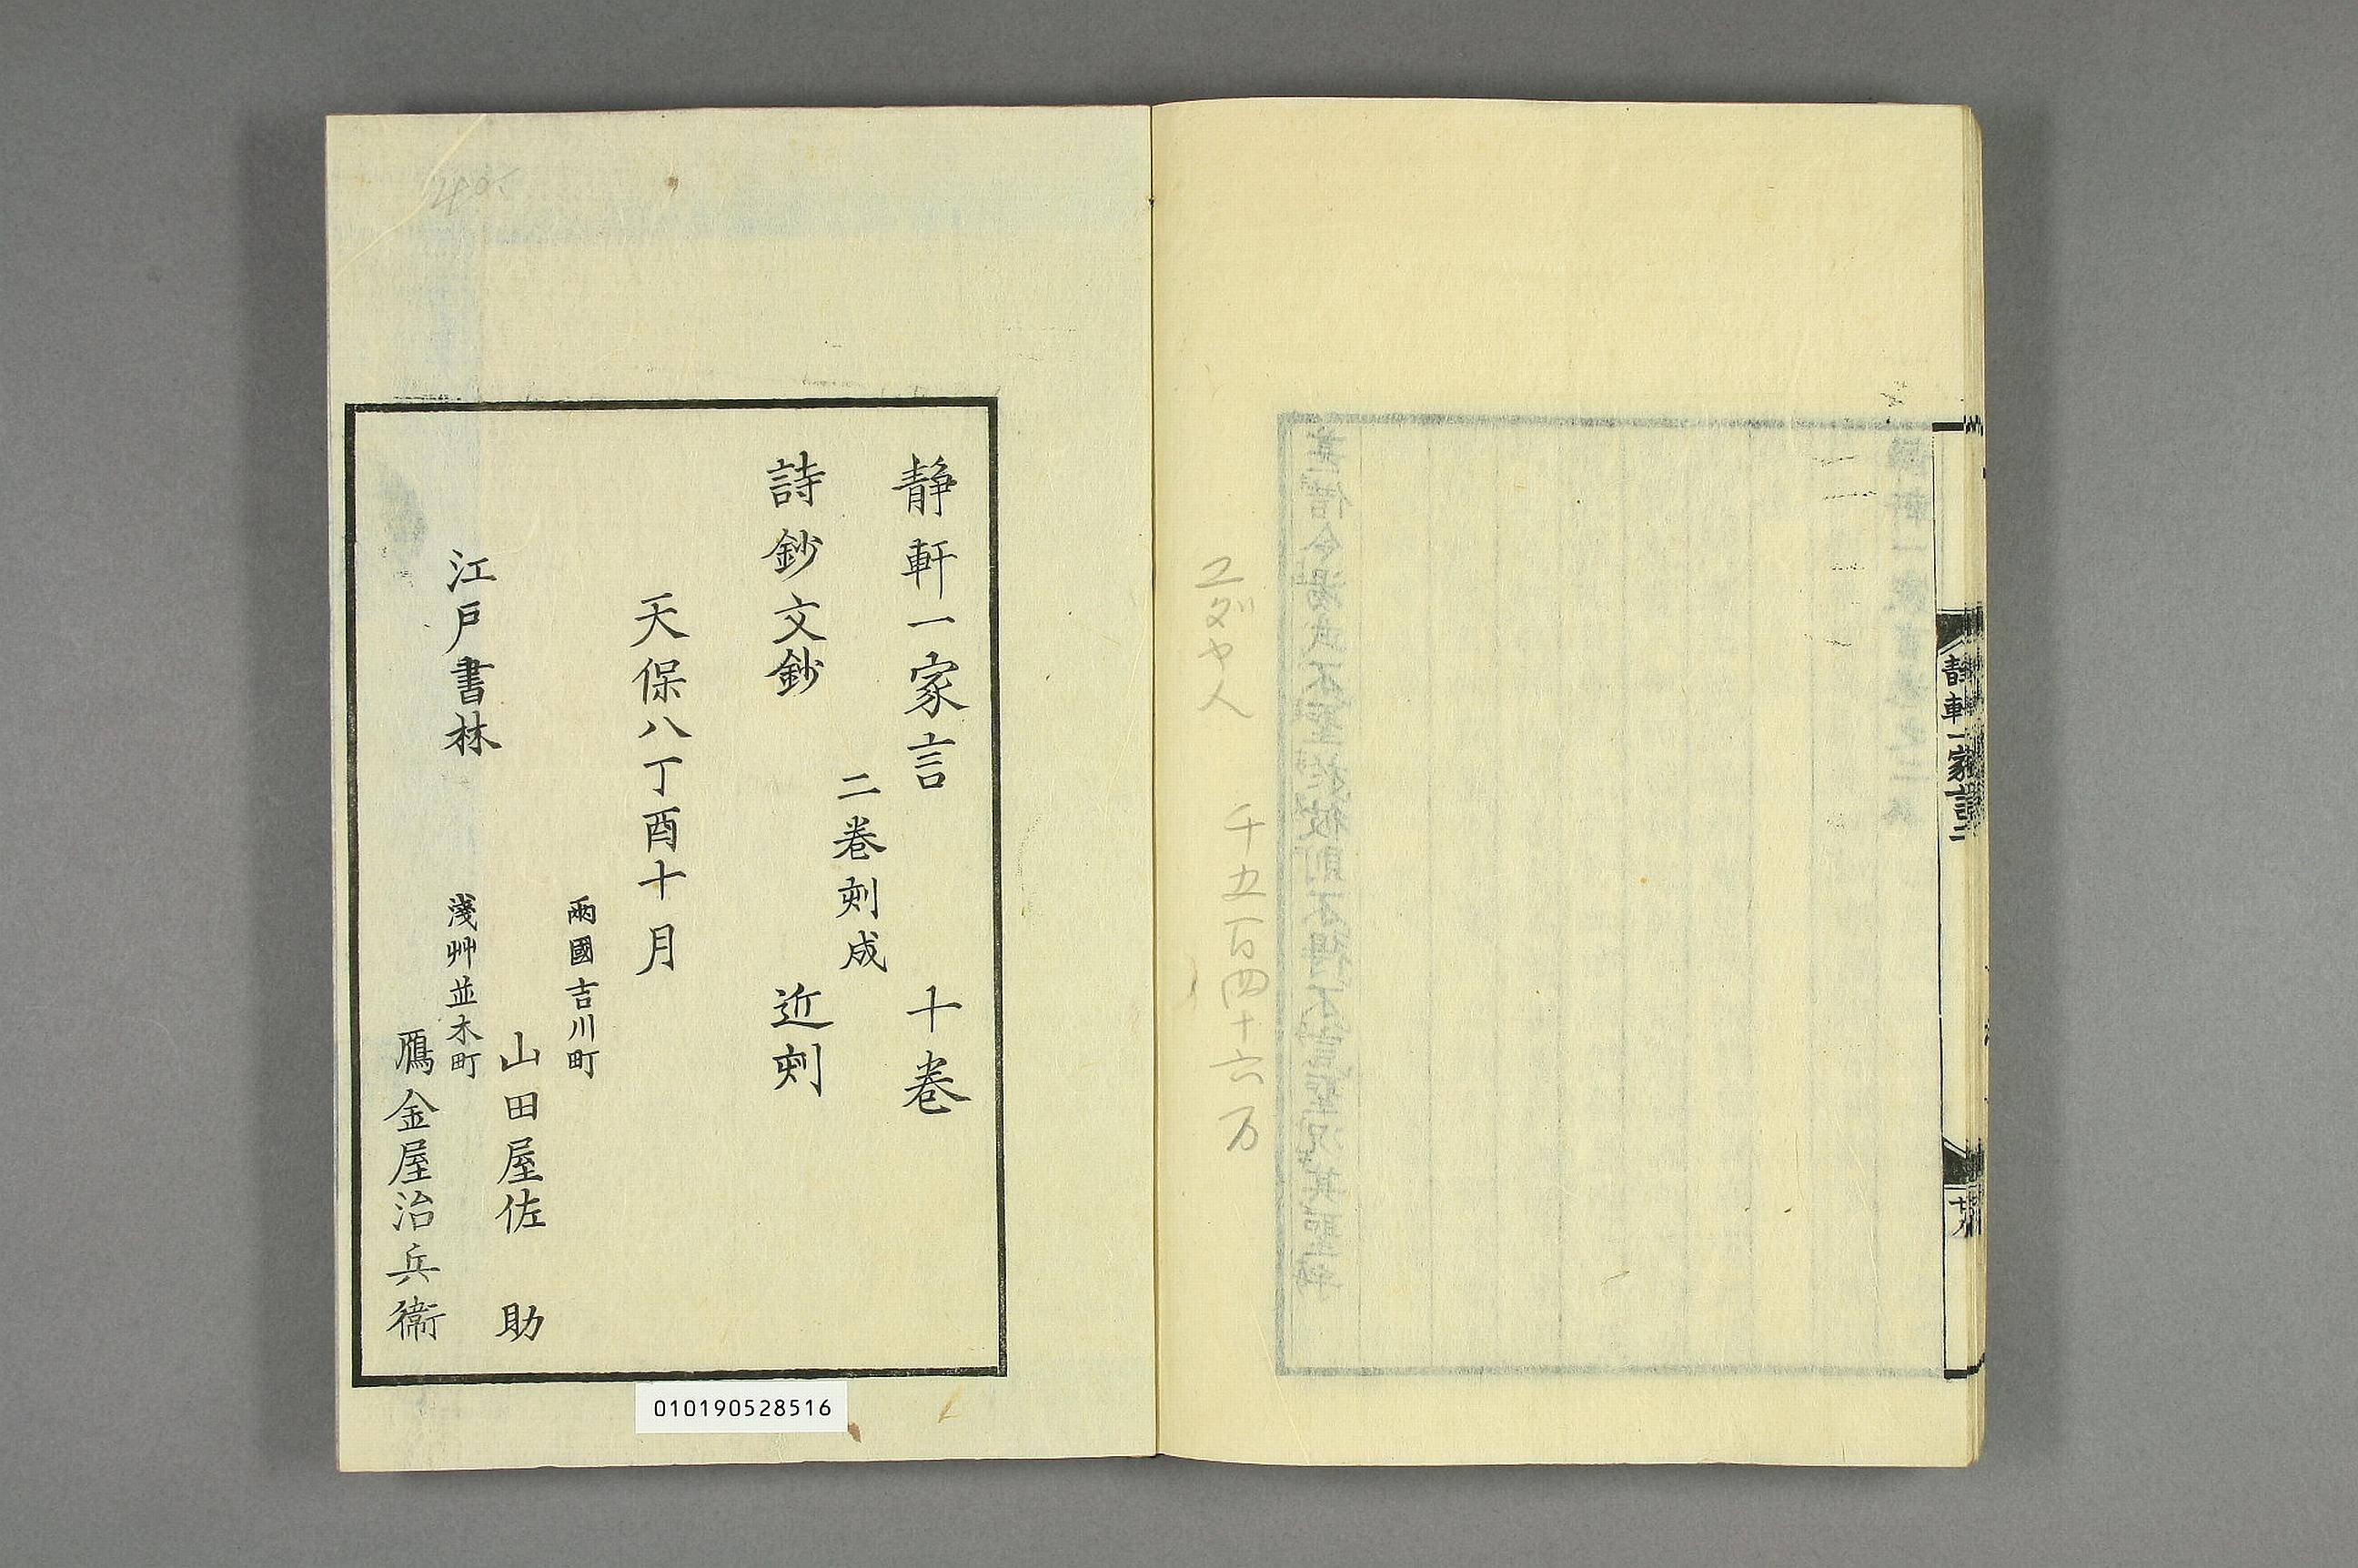 静軒一家言
廿八
ユダヤ人　千五百四十六万
静軒一家言　十卷
二卷刻成
詩鈔文鈔　近刻
天保八丁酉十月
兩國吉川町
山田屋佐助
江戸書林
淺艸並木町
鴈金屋治兵衞
010190528516